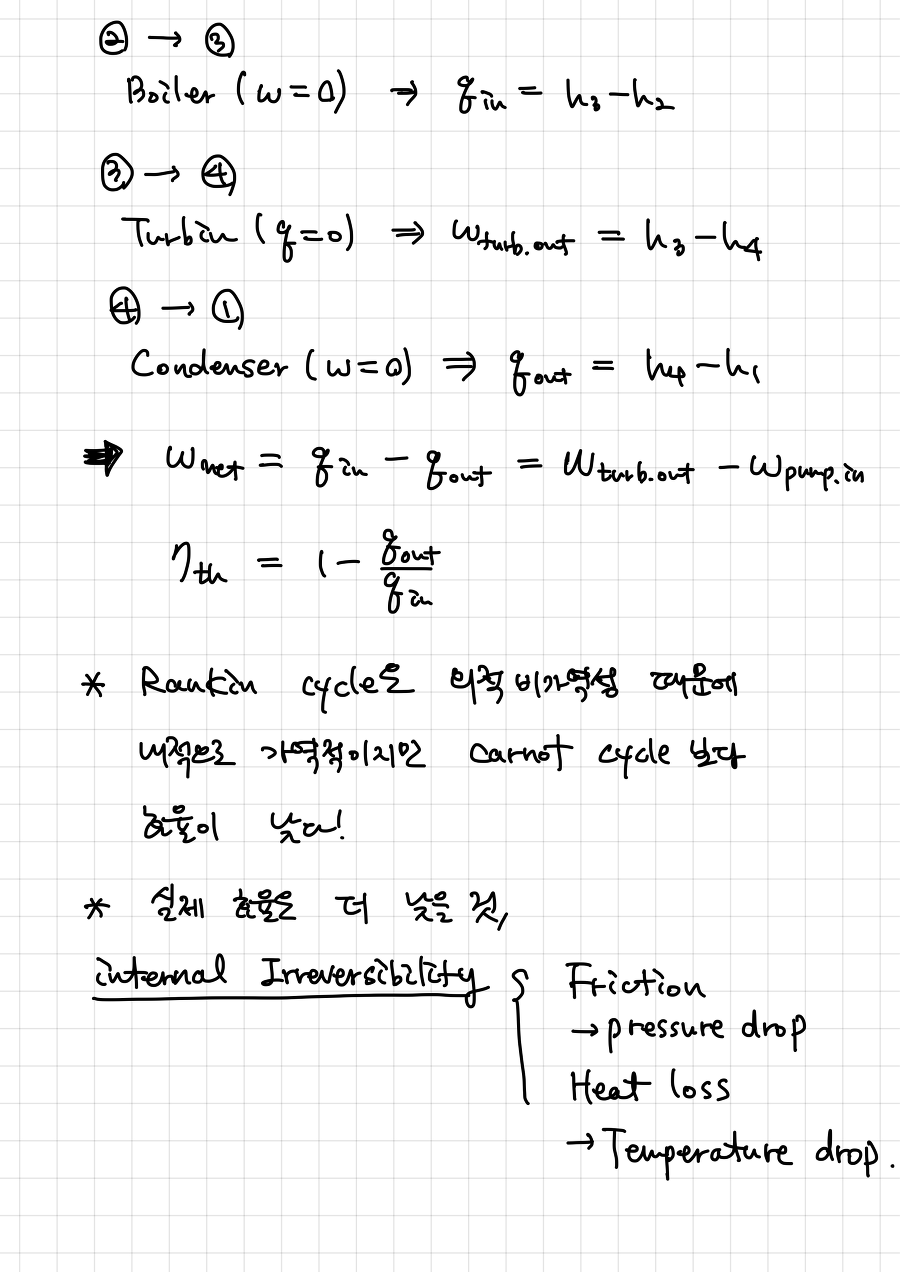 ② → ③
Boiler (w=0) ⇒ q in = h₃-h₂
③ → ④
Turbin (q=0) ⇒ w turb.out = h₃-h₄
④ → ①
Condenser (w=0) ⇒ q out = h₄-h₁
⇒ w net = q in - q out = w turb.out - w pump.in
η th = 1 - q out / q in
* Rankin cycle은 외적 비가역성 때문에
내적으로 가역적이지만 carnot cycle 보다
효율이 낮다!
* 실제 효율은 더 낮을 것,
internal Irreversibility { Friction
→ pressure drop
Heat loss
→ Temperature drop.